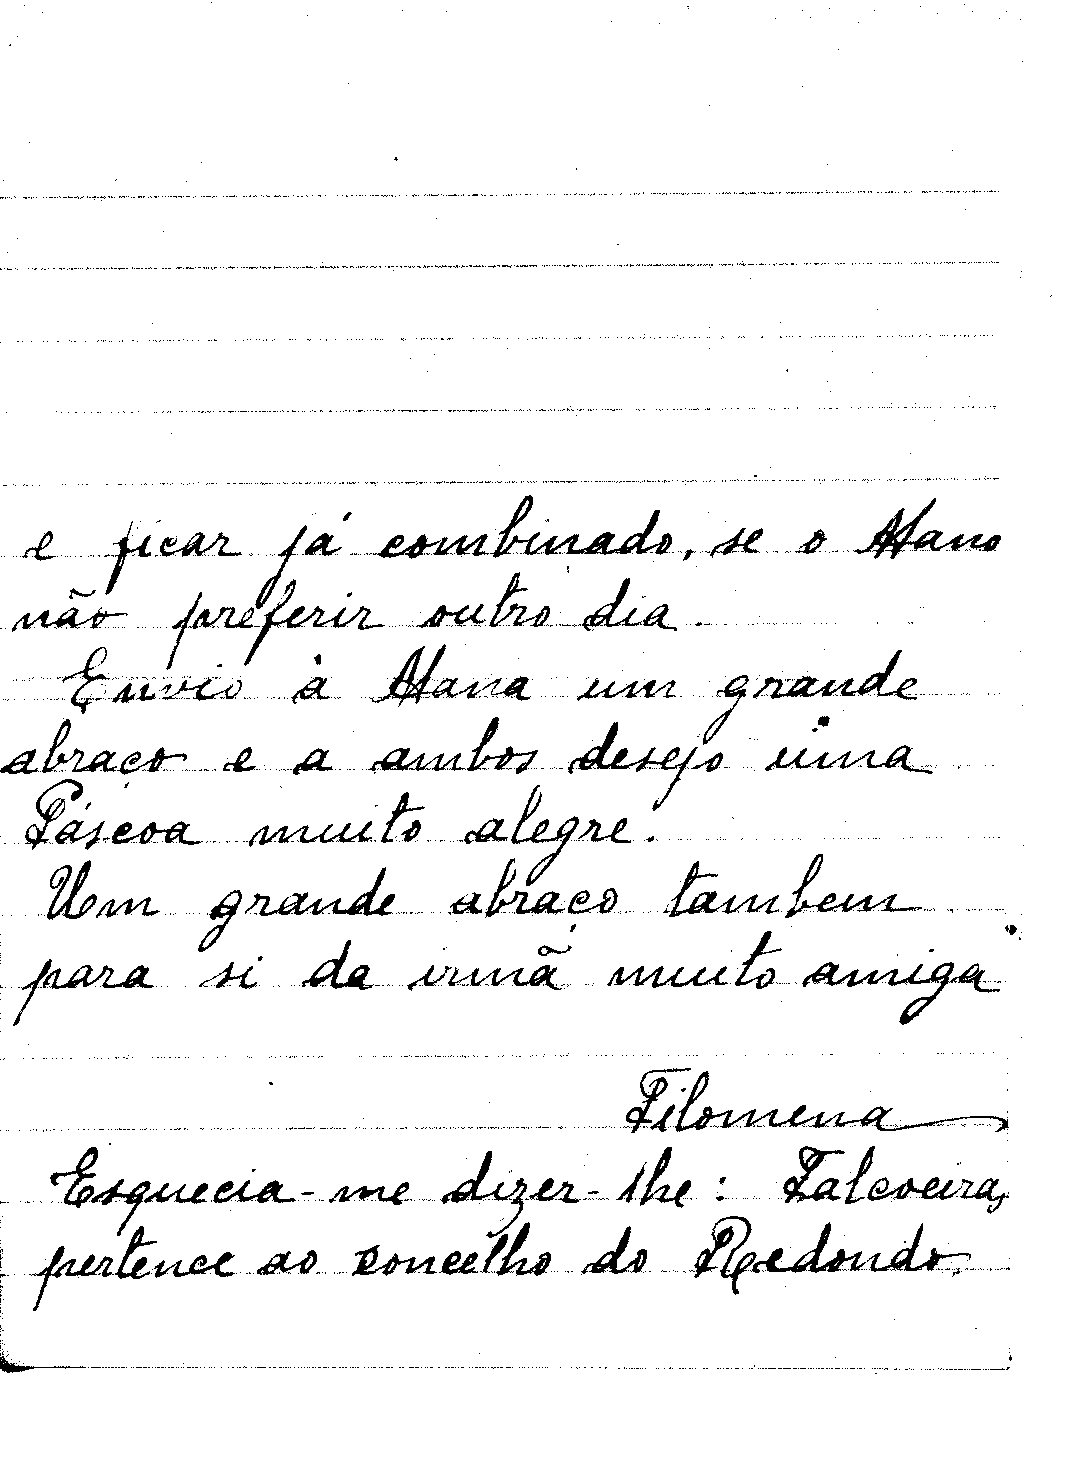 e ficar já combinado, se o Mano
não preferir outro dia.
Envio à Mana um grande
abraço e a ambos desejo uma
Páscoa muito alegre.
Um grande abraço tambem
para si da irmã muito amiga
Filomena
Esquecia-me dizer-lhe: Falcoeira,
pertence ao concelho do Redondo.